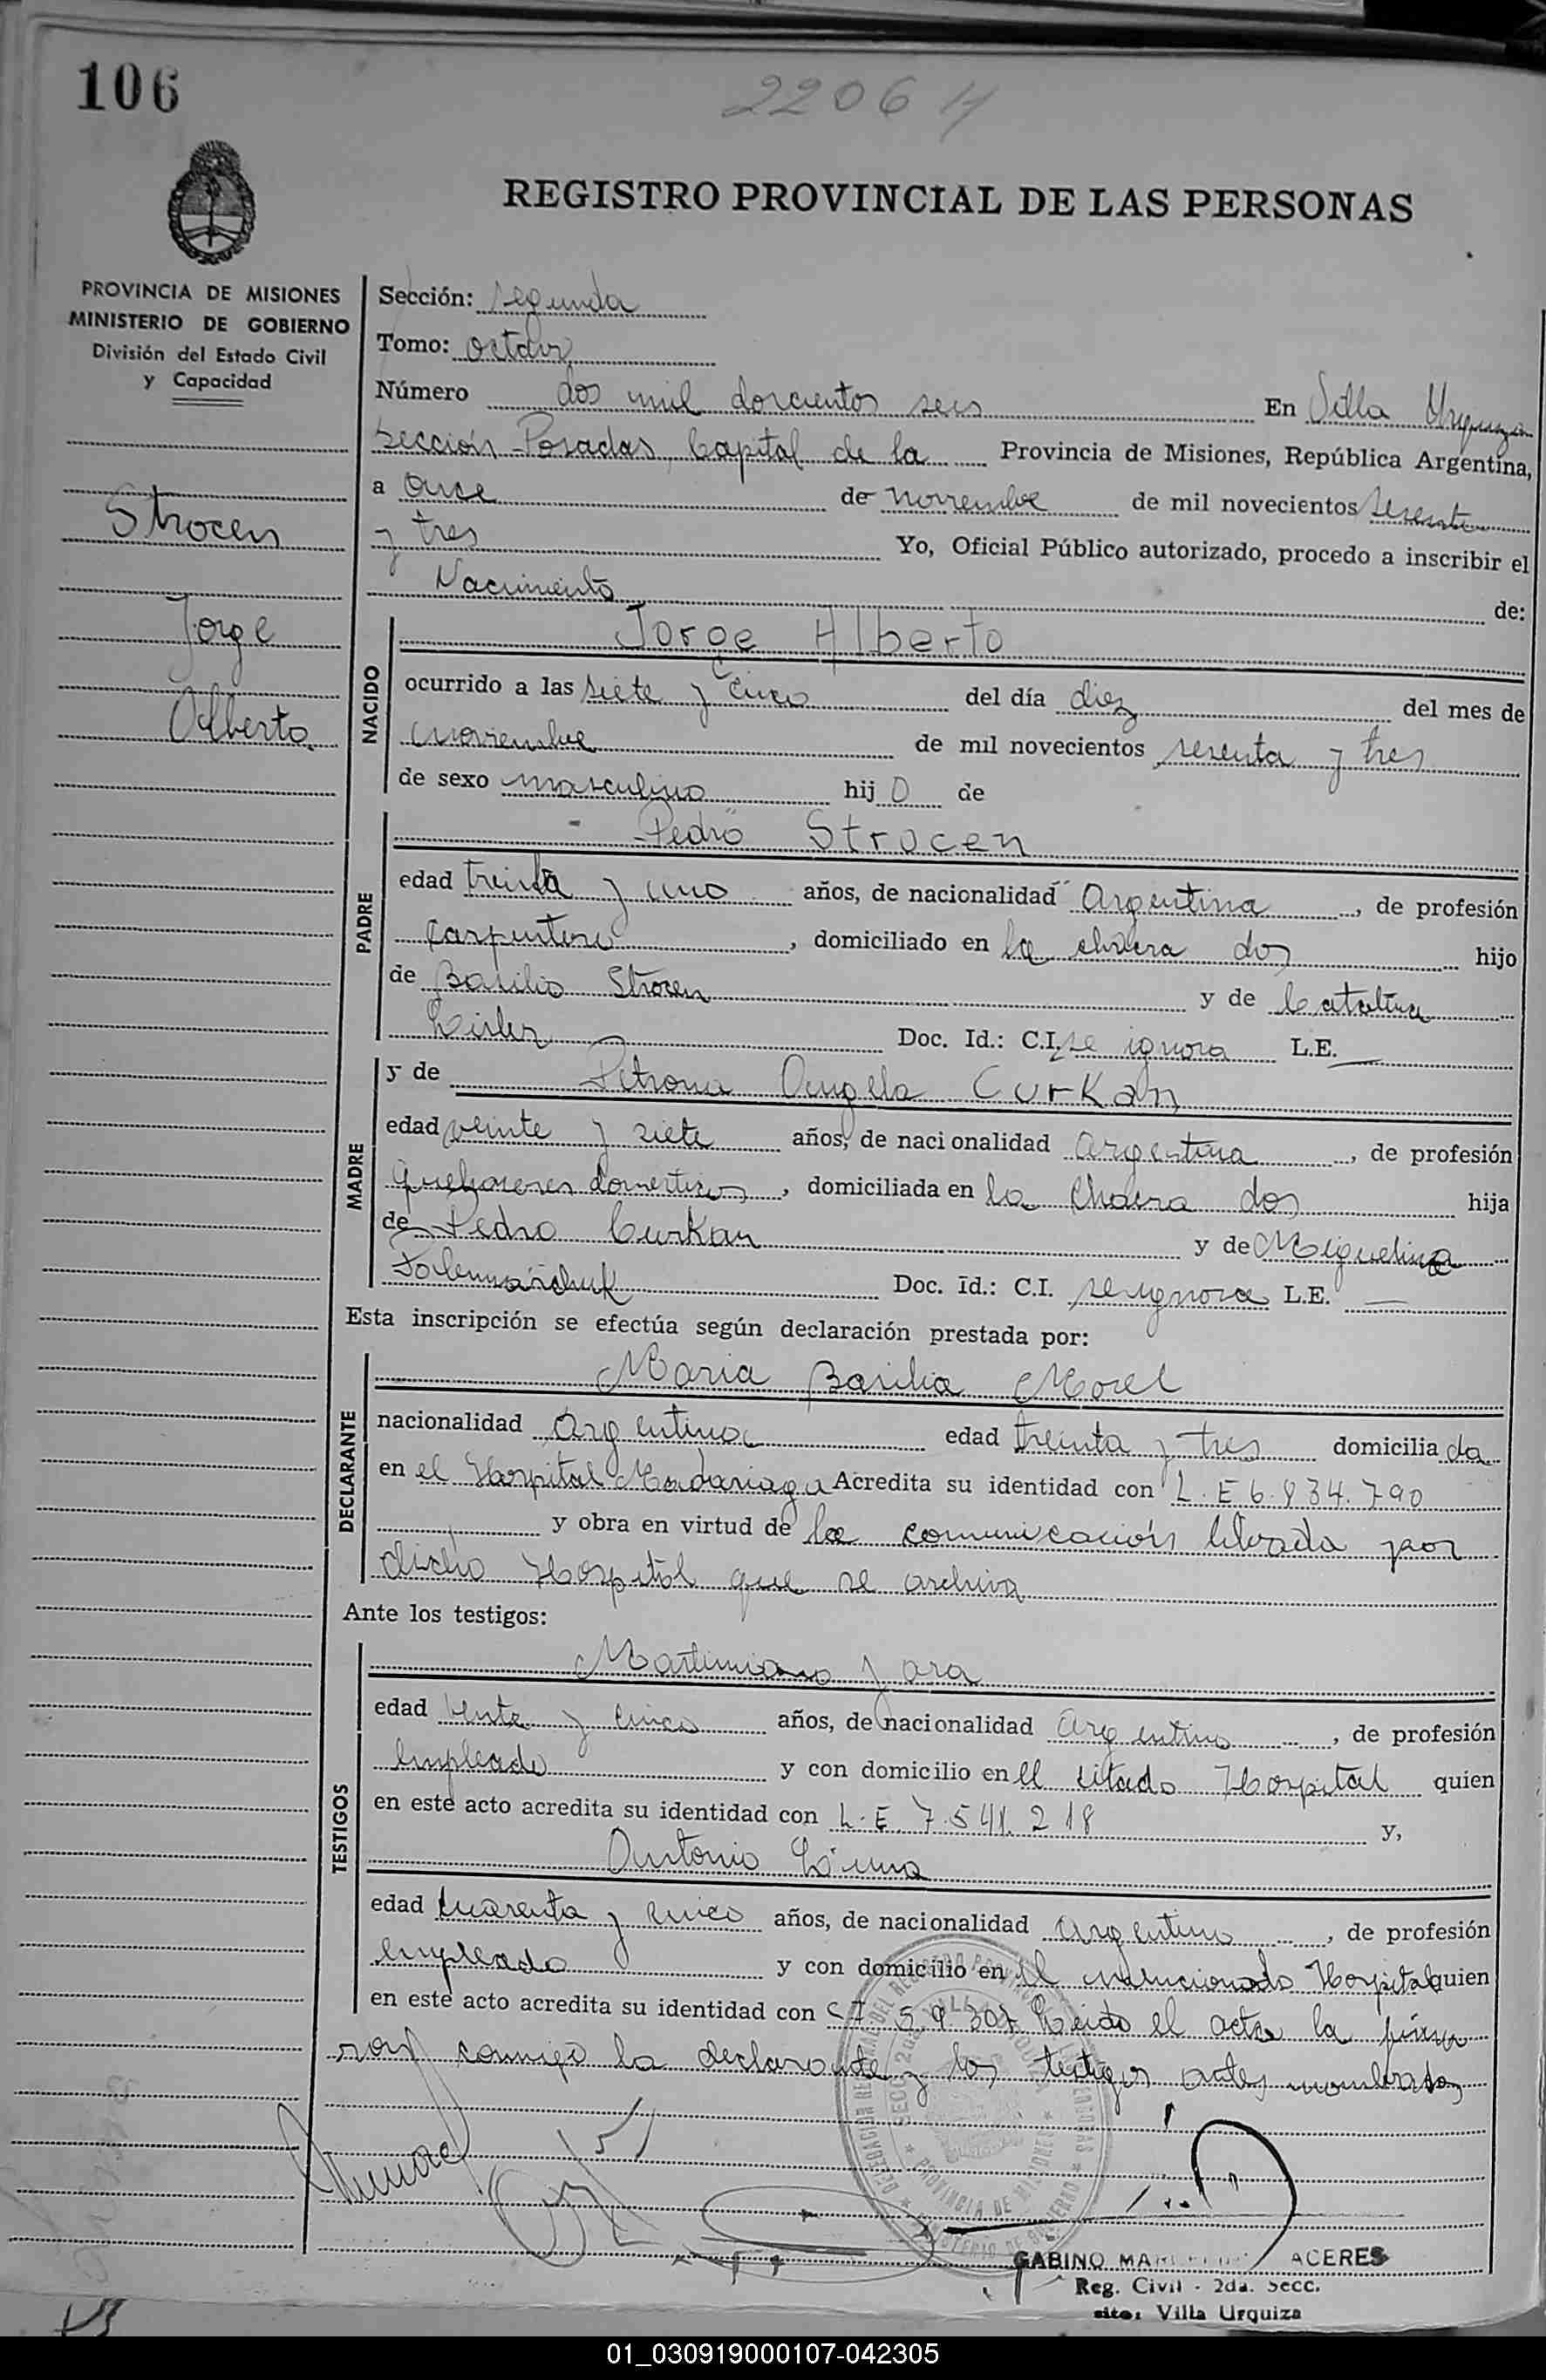 106
2206
REGISTRO PROVINCIAL DE LAS PERSONAS
PROVINCIA DE MISIONES
MINISTERIO DE GOBIERNO
División del Estado Civil
y Capacidad
Strocen
Jorge
Alberto
Sección: segunda
Tomo: octavo
Número dos mil doscientos seis En Villa Urquiza
sección Posadas, Capital de la Provincia de Misiones, República Argentina,
a once de noviembre de mil novecientos sesenta
y tres Yo, Oficial Público autorizado, procedo a inscribir el
Nacimiento de:
NACIDO
Jorge Alberto
ocurrido a las siete y cinco del día diez del mes de
noviembre de mil novecientos sesenta y tres
de sexo masculino hij o de
PADRE
Pedro Strocen
edad treinta y uno años, de nacionalidad Argentina, de profesión
carpintero, domiciliado en la chacra dos hijo
de Basilio Strocen y de Catalina
Doc. Id.: C.I. se ignora L.E. —
MADRE
y de Petrona Angela Curkan
edad veinte y siete años, de nacionalidad argentina, de profesión
quehaceres domesticos, domiciliada en la chacra dos hija
de Pedro Curkan y de Miguelina
Doc. Id.: C.I. se ignora L.E. —
Esta inscripción se efectúa según declaración prestada por:
DECLARANTE
Maria Basilia Morel
nacionalidad Argentina edad treinta y tres domicilia da
en el Hospital Madariaga Acredita su identidad con L.E 6.834.790
y obra en virtud de la comunicación librada por
dicho Hospital que se archiva
Ante los testigos:
TESTIGOS
Martimiano Jara
edad veinte y cinco años, de nacionalidad argentino, de profesión
empleado y con domicilio en el citado Hospital quien
en este acto acredita su identidad con L.E. 7.541.218 y,
Antonio
edad cuarenta y cinco años, de nacionalidad argentino, de profesión
empleado y con domicilio en el mencionado Hospital quien
en este acto acredita su identidad con C I Leido el acta la firma
ron conmigo la declarante y los testigos antes nombrados
GABINO ACERES
Reg. Civil - 2da. Secc.
sito: Villa Urquiza
01_030919000107-042305